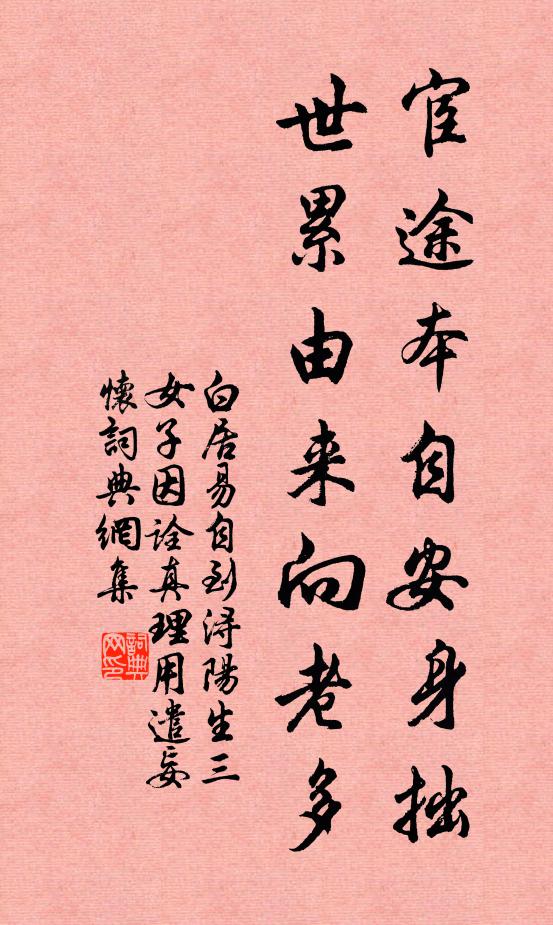 宦途本自安身拙
世累由来向老多
白居易自到浔陽生三
女子因詮真理用遣妄
懷詞典網集
詞典
网印